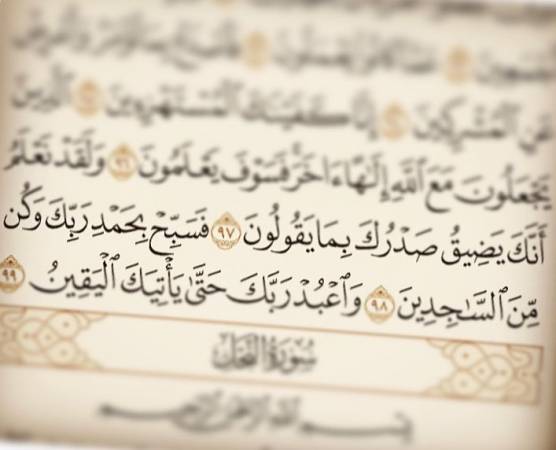 عَنِ ٱلْمُشْرِكِينَ ٩٤ إِنَّا كَفَيْنَٰكَ ٱلْمُسْتَهْزِءِينَ ٩٥ ٱلَّذِينَ
يَجْعَلُونَ مَعَ ٱللَّهِ إِلَٰهًا ءَاخَرَ فَسَوْفَ يَعْلَمُونَ ٩٦ وَلَقَدْ نَعْلَمُ
أَنَّكَ يَضِيقُ صَدْرُكَ بِمَا يَقُولُونَ ٩٧ فَسَبِّحْ بِحَمْدِ رَبِّكَ وَكُن
مِّنَ ٱلسَّٰجِدِينَ ٩٨ وَٱعْبُدْ رَبَّكَ حَتَّىٰ يَأْتِيَكَ ٱلْيَقِينُ ٩٩
سُورَةُ ٱلنَّحْلِ
بِسْمِ ٱللَّهِ ٱلرَّحْمَٰنِ ٱلرَّحِيمِ